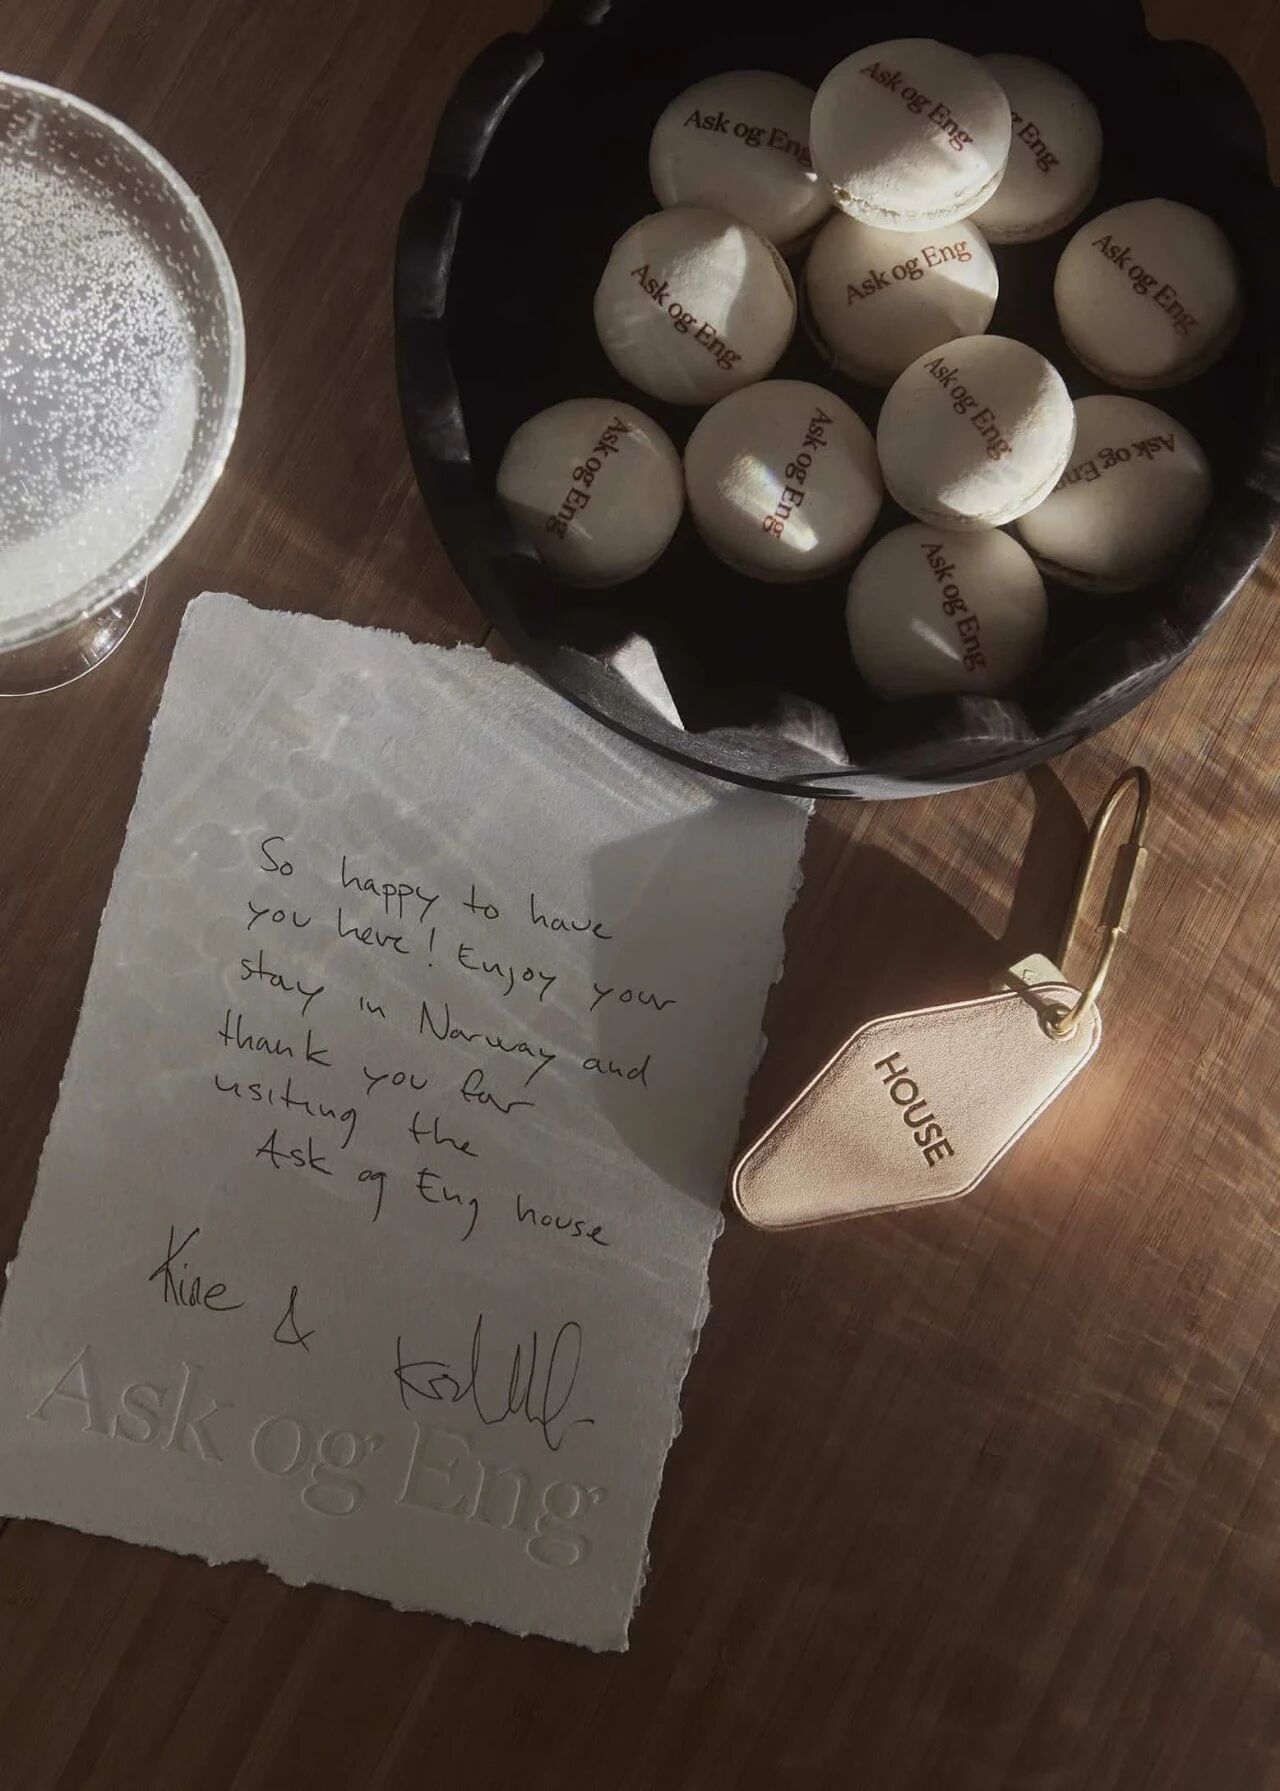 Ask og Eng
Ask og Eng
g Eng
Ask og Eng
Ask og Eng
Ask og Eng
Ask og Eng
Ask og Eng
Ask og Eng
Ask og Eng
Ask og Eng
So happy to have
you here! Enjoy your
stay in Norway and
thank you for
visiting the
Ask og Eng house
Kine &
Ask og Eng
HOUSE